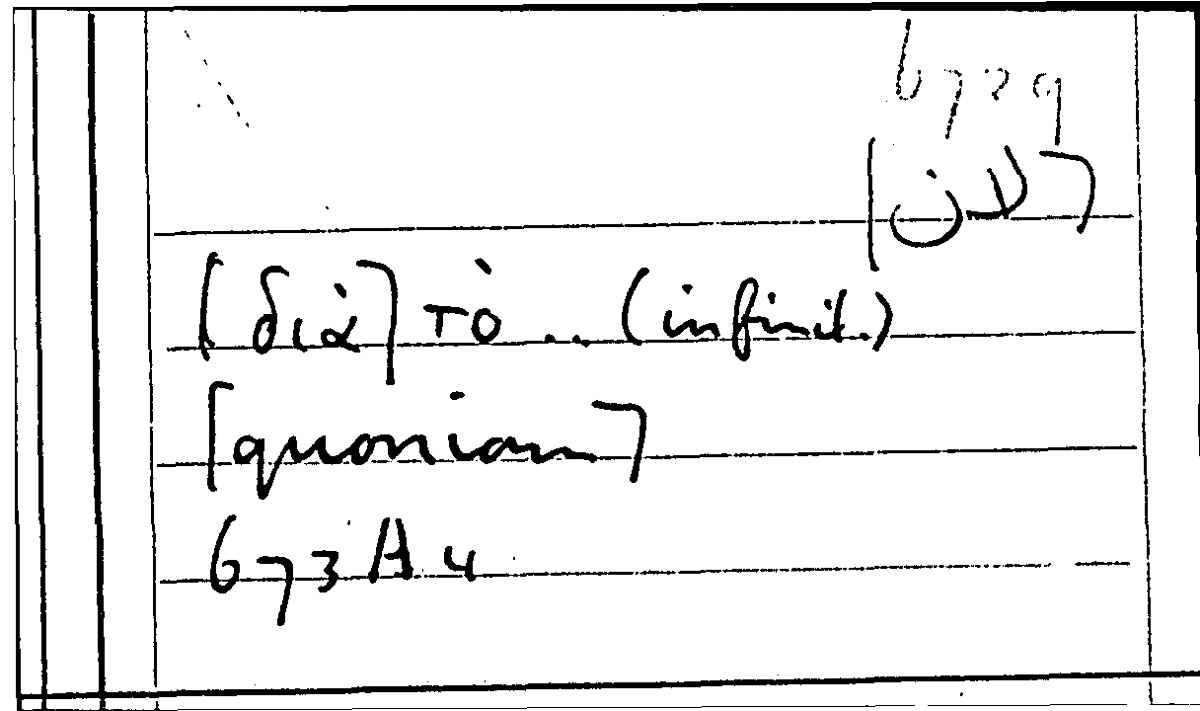 6729
[لان]
[διὰ] τὸ ... (infinit.)
[quoniam]
673 A 4